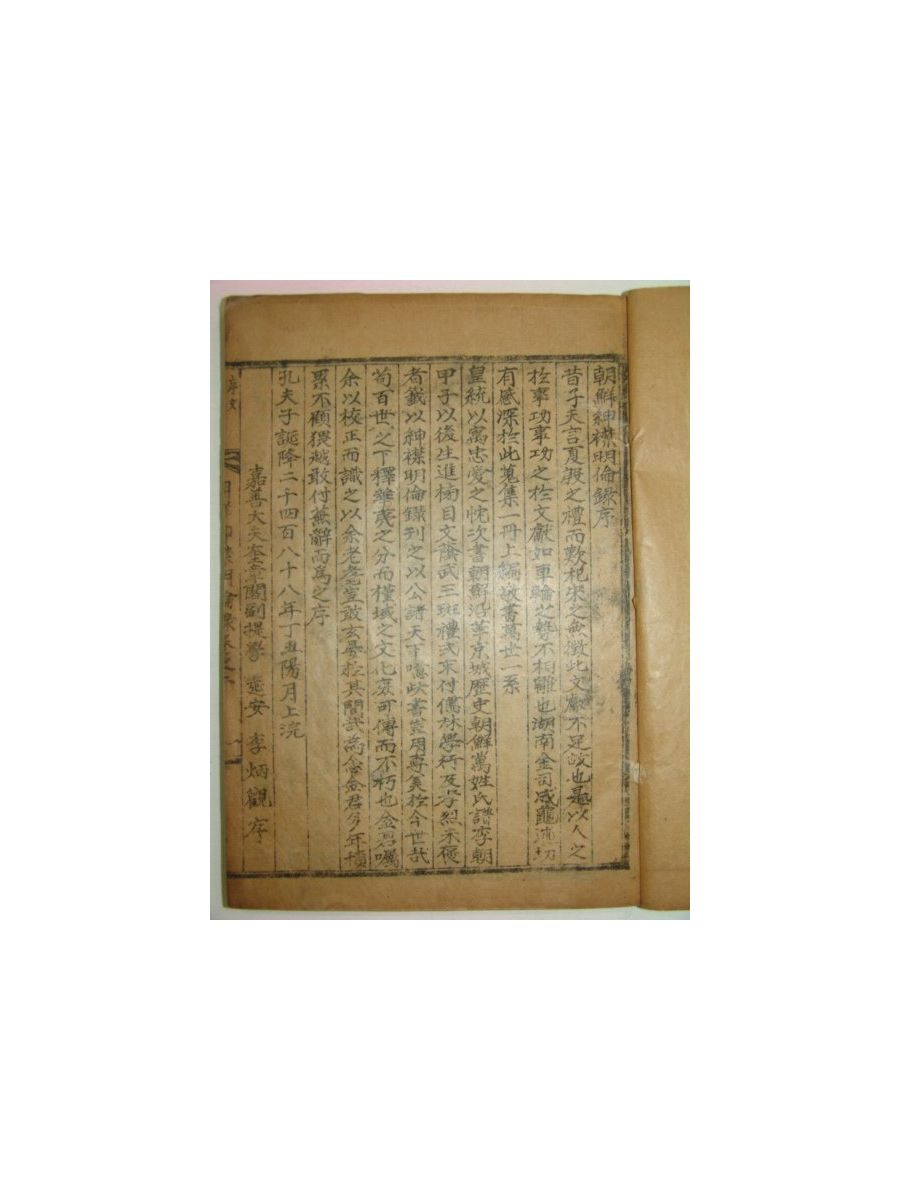 朝鮮紳襟明倫錄序
昔子夫言夏殷之禮而歎杞宋之無徵此文獻不足故也是以人之
於事功事功之於文獻如車輪之勢不相離也湖南金司
有感深於此蒐集一冊上編敬書萬世一系
皇統以寓忠愛之忱次書朝鮮沿革京城歷史朝鮮萬姓氏譜李朝
甲子以後生進榜目文蔭武三班禮式末付儒林學行及孝烈未褒
者籤以紳襟明倫錄刊之以公諸天下噫此書豈用專美於今世哉
苟百世之下釋華夷之分而槿域之文化庶可傳而不朽也金君囑
余以校正而識之以余老耄豈敢玄晏於其間哉為念金君多年積
累不顧猥越敢付蕪辭而爲之序
孔夫子誕降二千四百八十八年丁丑陽月上浣
嘉善大夫奎章閣副提學 延安 李炳觀 序
序文